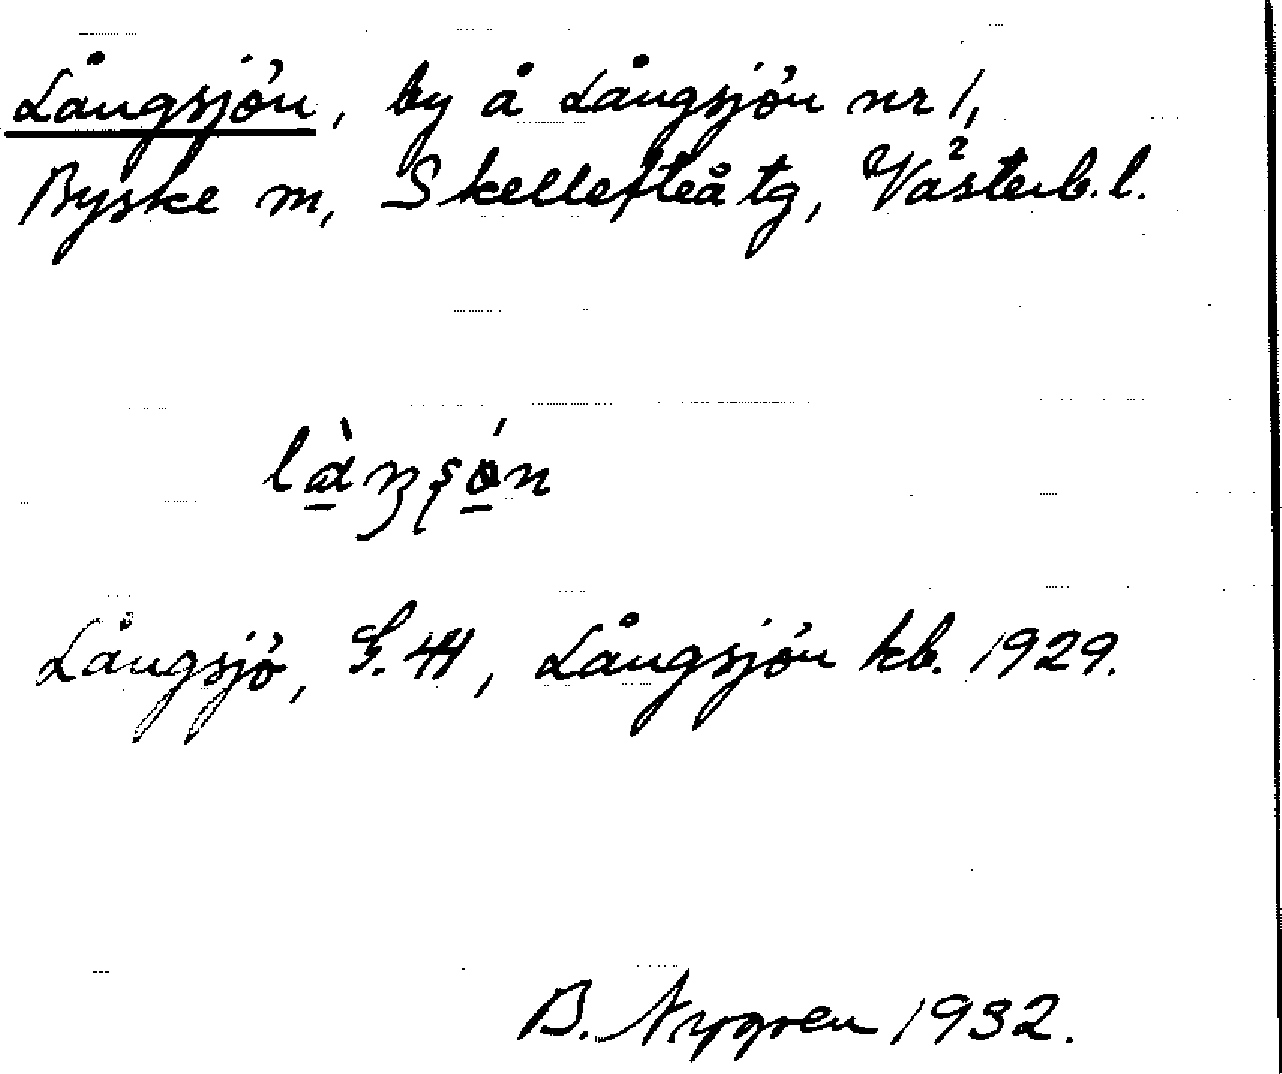 Långsjön, by å Långsjön nr 1,
Byske m, Skellefteå tg, Västerb. l.
Långsjö, G. 44, Långsjön kb. 1929.
B. Nygren 1932.